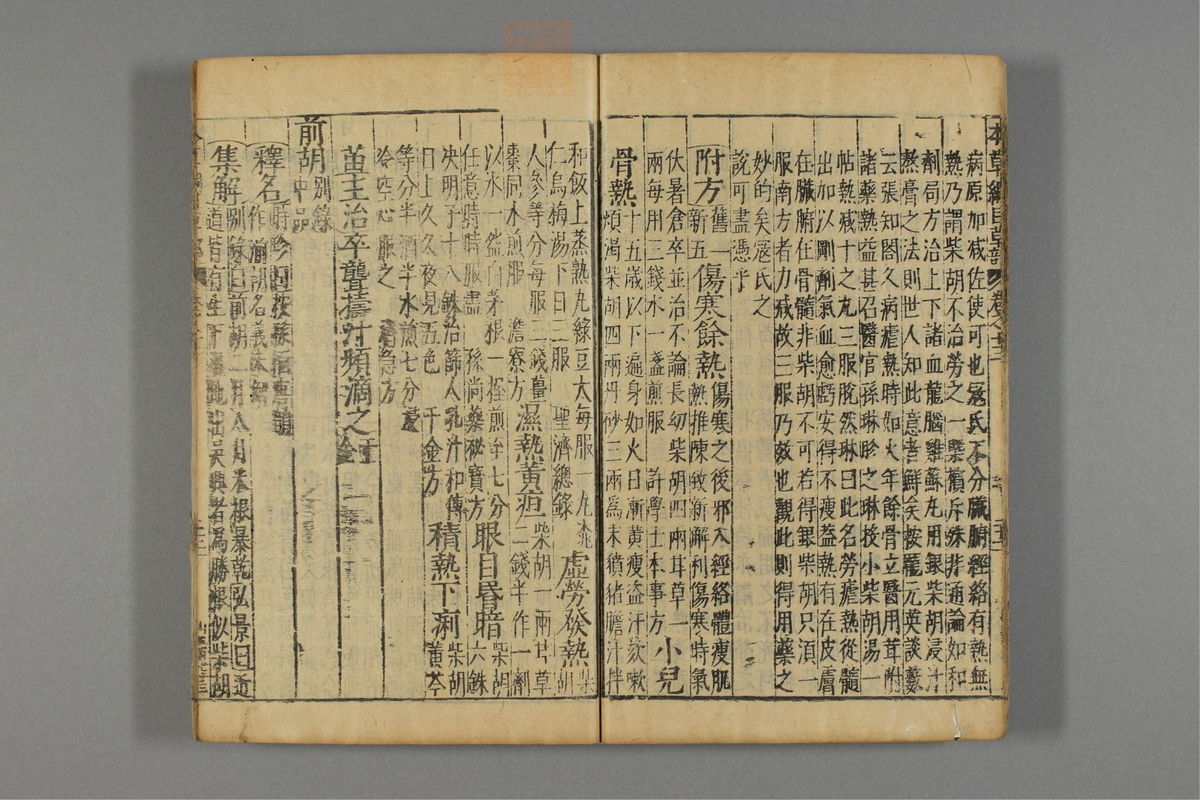 本草綱目草部
病原加减佐使可也寇氏不分臟腑經絡有熱無
熱乃謂柴胡不治勞之一槩擯斥殊非通論如和
劑局方治上下諸血龍腦雞蘇丸用銀柴胡浸汁
熬膏之法則世人知此意者鮮矣按龐元英談藪
云張知閤久病瘧熱時如火年餘骨立醫用茸附
諸藥熱益甚召醫官孫琳胗之琳投小柴胡湯一
帖熱减十之九三服脫然琳曰此名勞瘧熱從髓
出加以剛劑氣血愈虧安得不瘦盖熱有在皮膚
在臟腑在骨髓非柴胡不可若得銀柴胡只湏一
服南方者力减故三服乃效也觀此則得用藥之
妙的矣寇氏之
說可盡憑乎
附方 舊一新五 傷寒餘熱 傷寒之後邪入經絡體瘦肌
熱推陳致新解利傷寒時氣
伏暑倉卒並治不論長幼柴胡四兩甘草一
兩每用三錢水一盞煎服 許學士本事方 小兒
骨熱 十五歲以下遍身如火日漸黄瘦盗汗欬嗽
煩渴柴胡四兩丹砂三兩爲末獖猪膽汁拌
和飯上蒸熟丸綠豆大每服一丸
仁烏梅湯下日三服 聖濟總錄 虛勞發熱 柴胡
人參等分每服三錢薑
棗同水煎服 澹寮方 濕熱黄疸 柴胡一兩甘草
二錢半作一劑
以水一盌白茅根一握煎至七分
任意時時服盡 孫尚藥祕寶方 眼目昏暗 柴胡
六銖
决明子十八銖治篩人乳汁和傅
目上久久夜見五色 千金方 積熱下痢 柴胡
黄芩
等分半酒半水煎七分
冷空心服之 濟急方
苗主治卒聾擣汁頻滴之 千金
前胡 别錄中品
釋名 時珍曰按孫愐
作湔胡名義未解
集解 别錄曰前胡二月八月采根暴乾弘景曰近
道皆有生下濕地出吳興者爲勝根似柴胡